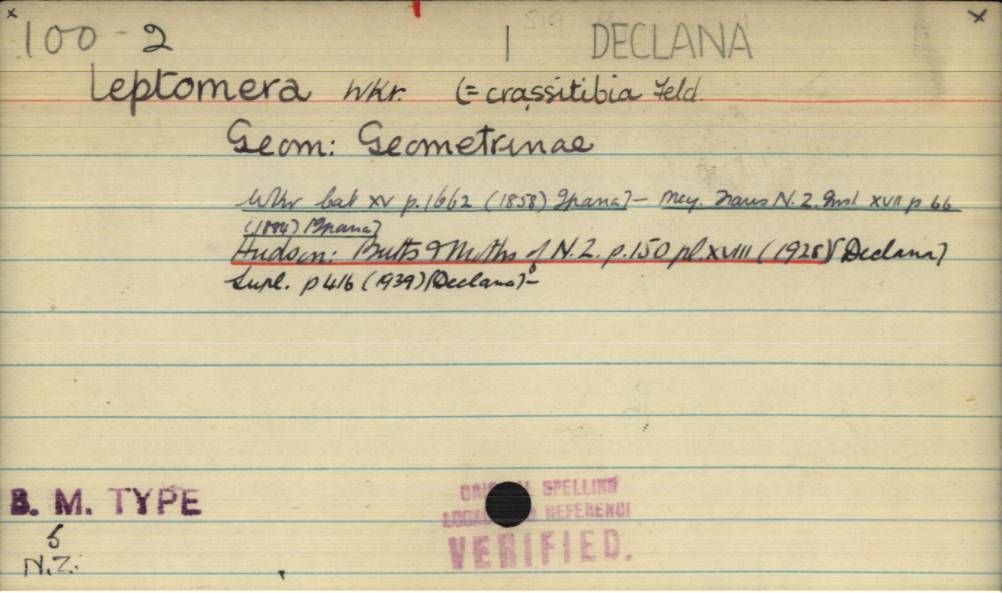 x x
100-2 1 DECLANA
leptomera Wkr. (= crassitibia Feld.
Geom: Geometrinae
Wkr Cat XV p.1662 (1858) - Mey. Trans N.Z. Inst XVII p 66
(1884)
Hudson: Butts & Moths of N.Z. p.150 pl.XVIII (1928) [Declana]
Supl. p 416 (1939) [Declana] -
B. M. TYPE
N.Z.
SPELLING
REFERENCE
VERIFIED.